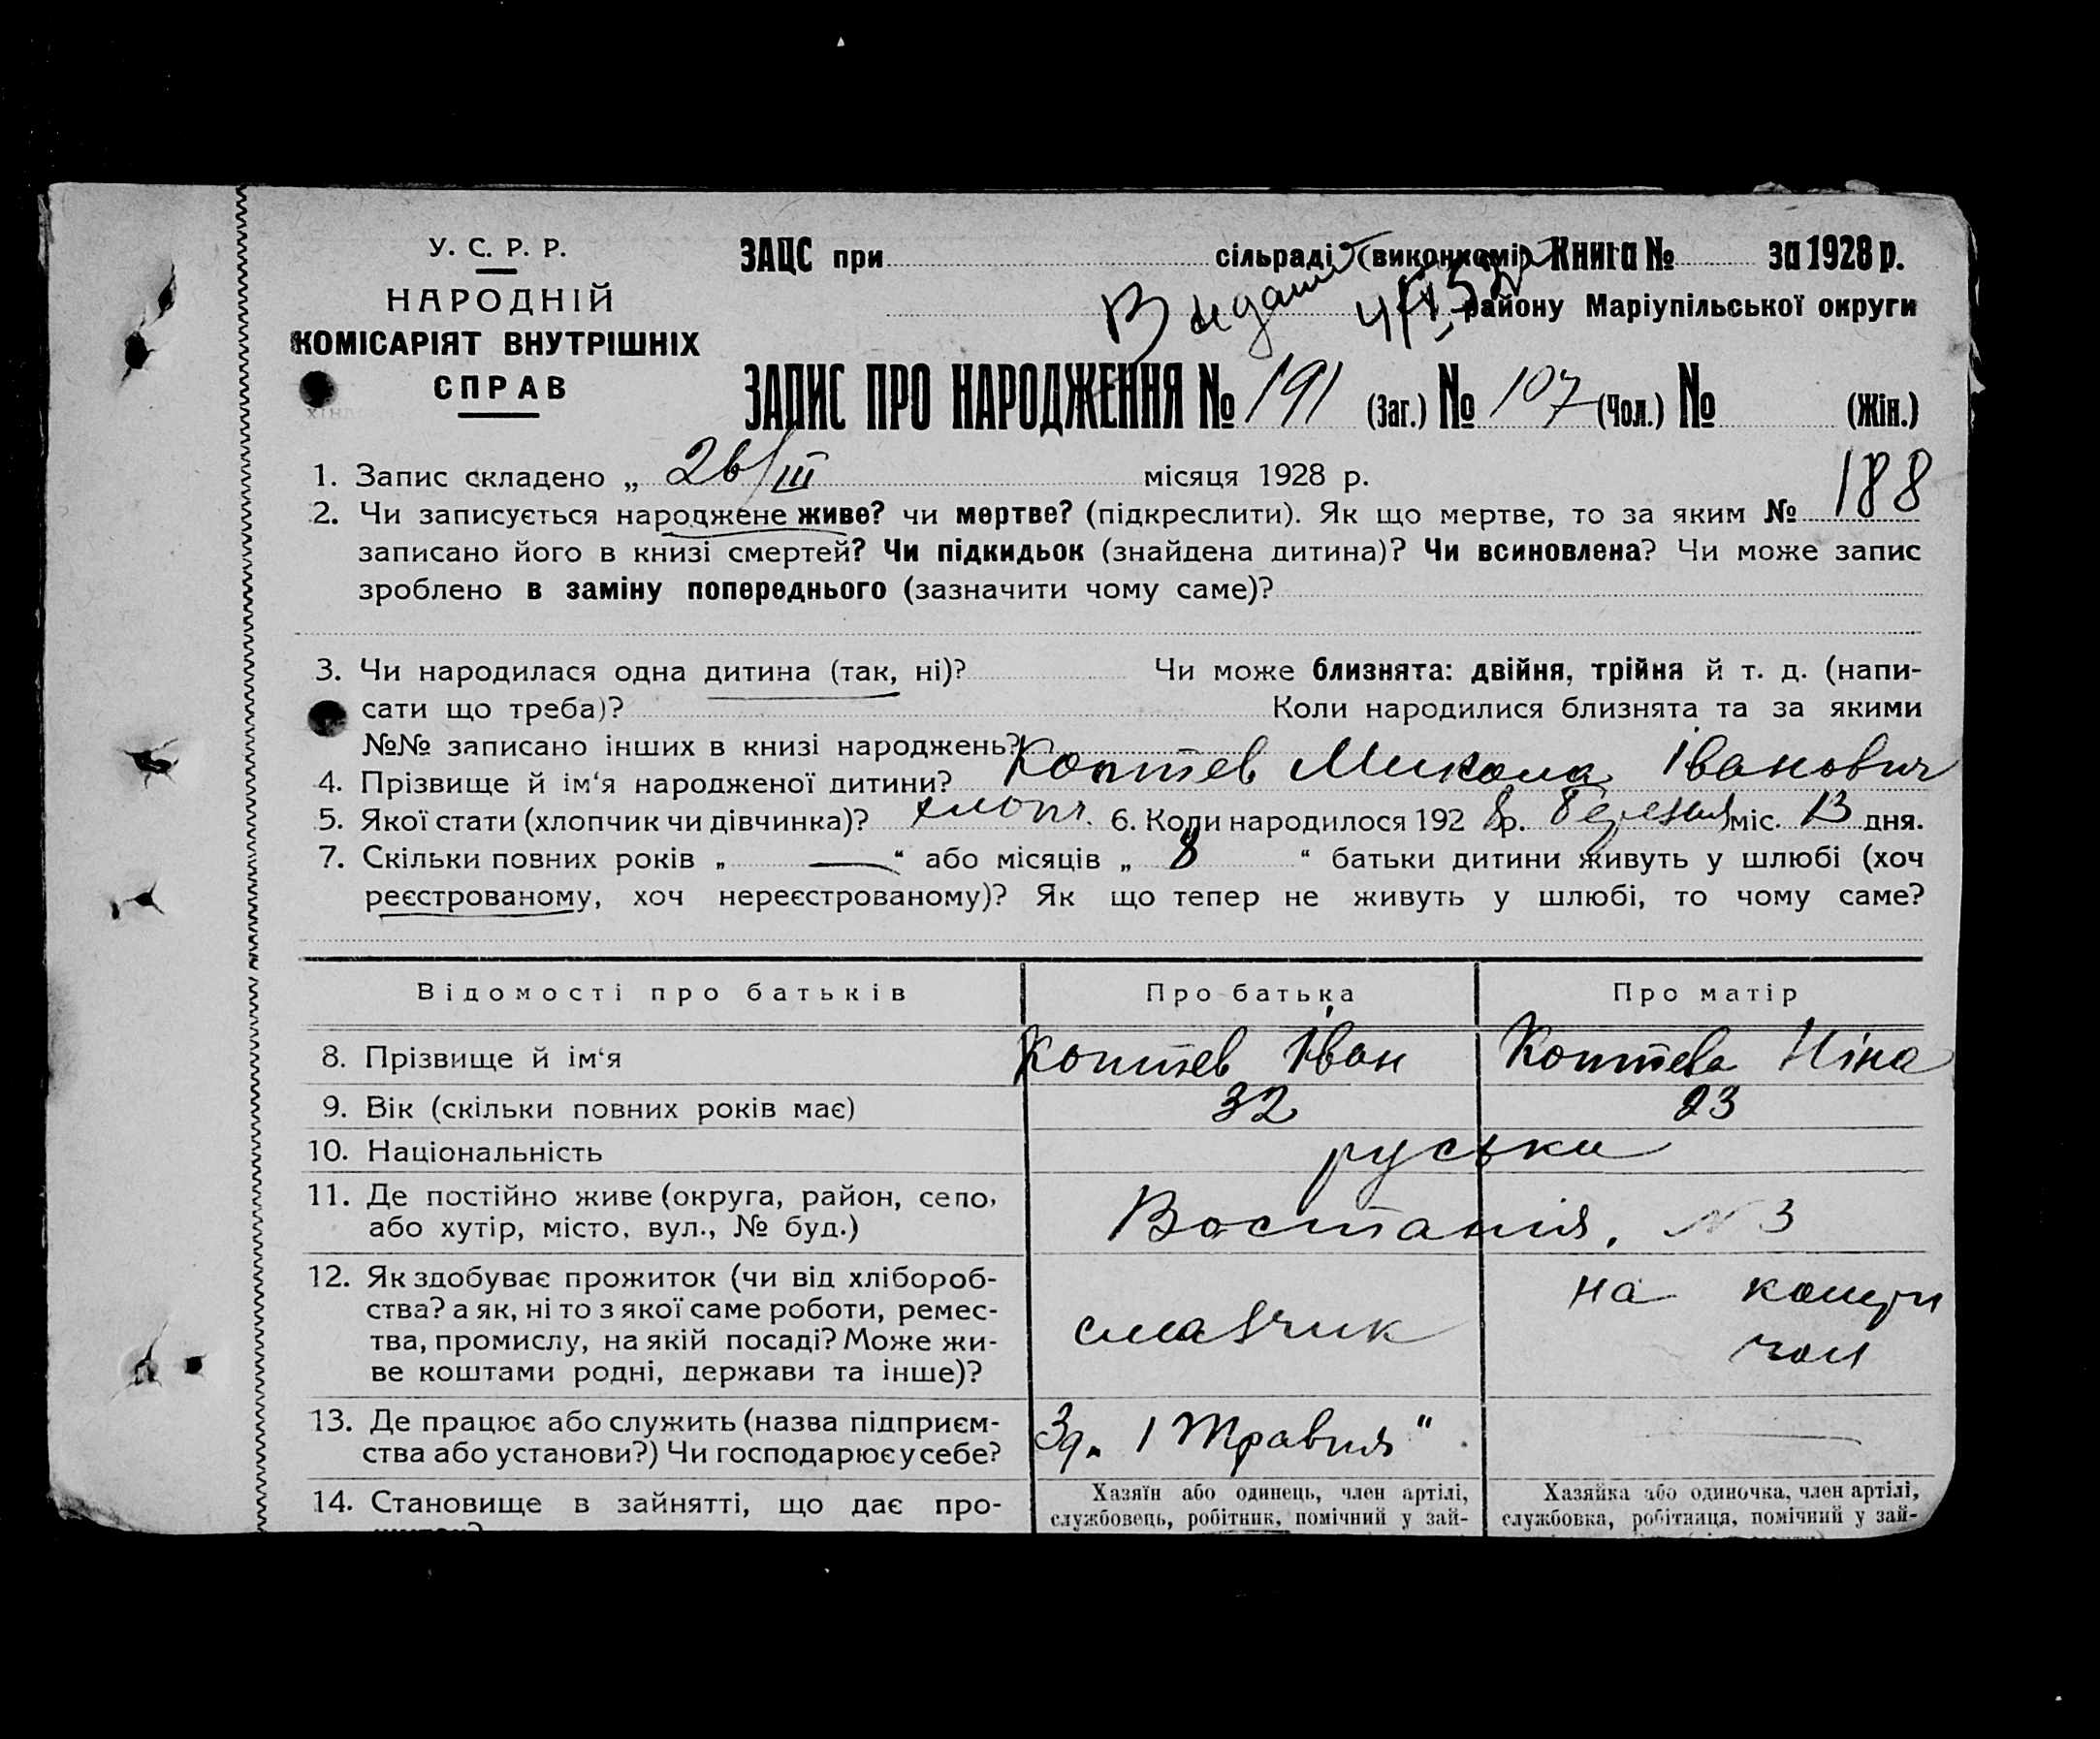 У. С. Р. Р.
НАРОДНІЙ
КОМІСАРІЯТ ВНУТРІШНІХ
СПРАВ
ЗАЦС при сільраді (виконкомі) Книга № за 1928 р.
району Маріупільської округи
ЗАПИС ПРО НАРОДЖЕННЯ № 191 (Заг.) № 107 (Чол.) № (Жін.)
1. Запис складено „ 26/III місяця 1928 р.
188
2. Чи записується народжене живе? чи мертве? (підкреслити). Як що мертве, то за яким №
записано його в книзі смертей? Чи підкидьок (знайдена дитина)? Чи всиновлена? Чи може запис
зроблено в заміну попереднього (зазначити чому саме)?
3. Чи народилася одна дитина (так, ні)? Чи може близнята: двійня, трійня й т. д. (напи-
сати що треба)? Коли народилися близнята та за якими
№№ записано інших в книзі народжень?
4. Прізвище й ім‘я народженої дитини? Коптев Микола Іванович
5. Якої стати (хлопчик чи дівчинка)? хлопч. 6. Коли народилося 192 8 р. березня міс. 13 дня.
7. Скільки повних років „ — “ або місяців „ 8 “ батьки дитини живуть у шлюбі (хоч
реєстрованому, хоч нереєстрованому)? Як що тепер не живуть у шлюбі, то чому саме?
Відомості про батьків Про батька Про матір
8. Прізвище й ім‘я Коптев Іван Коптева Ніна
9. Вік (скільки повних років має) 32 23
10. Національність руськи
11. Де постійно живе (округа, район, село,
або хутір, місто, вул., № буд.) Востания, № 3
12. Як здобуває прожиток (чи від хлібороб-
ства? а як, ні то з якої саме роботи, ремес-
тва, промислу, на якій посаді? Може жи-
ве коштами родні, держави та інше)?
на кошти
чол
13. Де працює або служить (назва підприєм-
ства або установи?) Чи господарює у себе? 1 Травня“
14. Становище в зайнятті, що дає про-
Хазяїн або одинець, член артілі,
службовець, робітник, помічний у зай-
Хазяйка або одиночка, член артілі,
службовка, робітниця, помічний у зай-